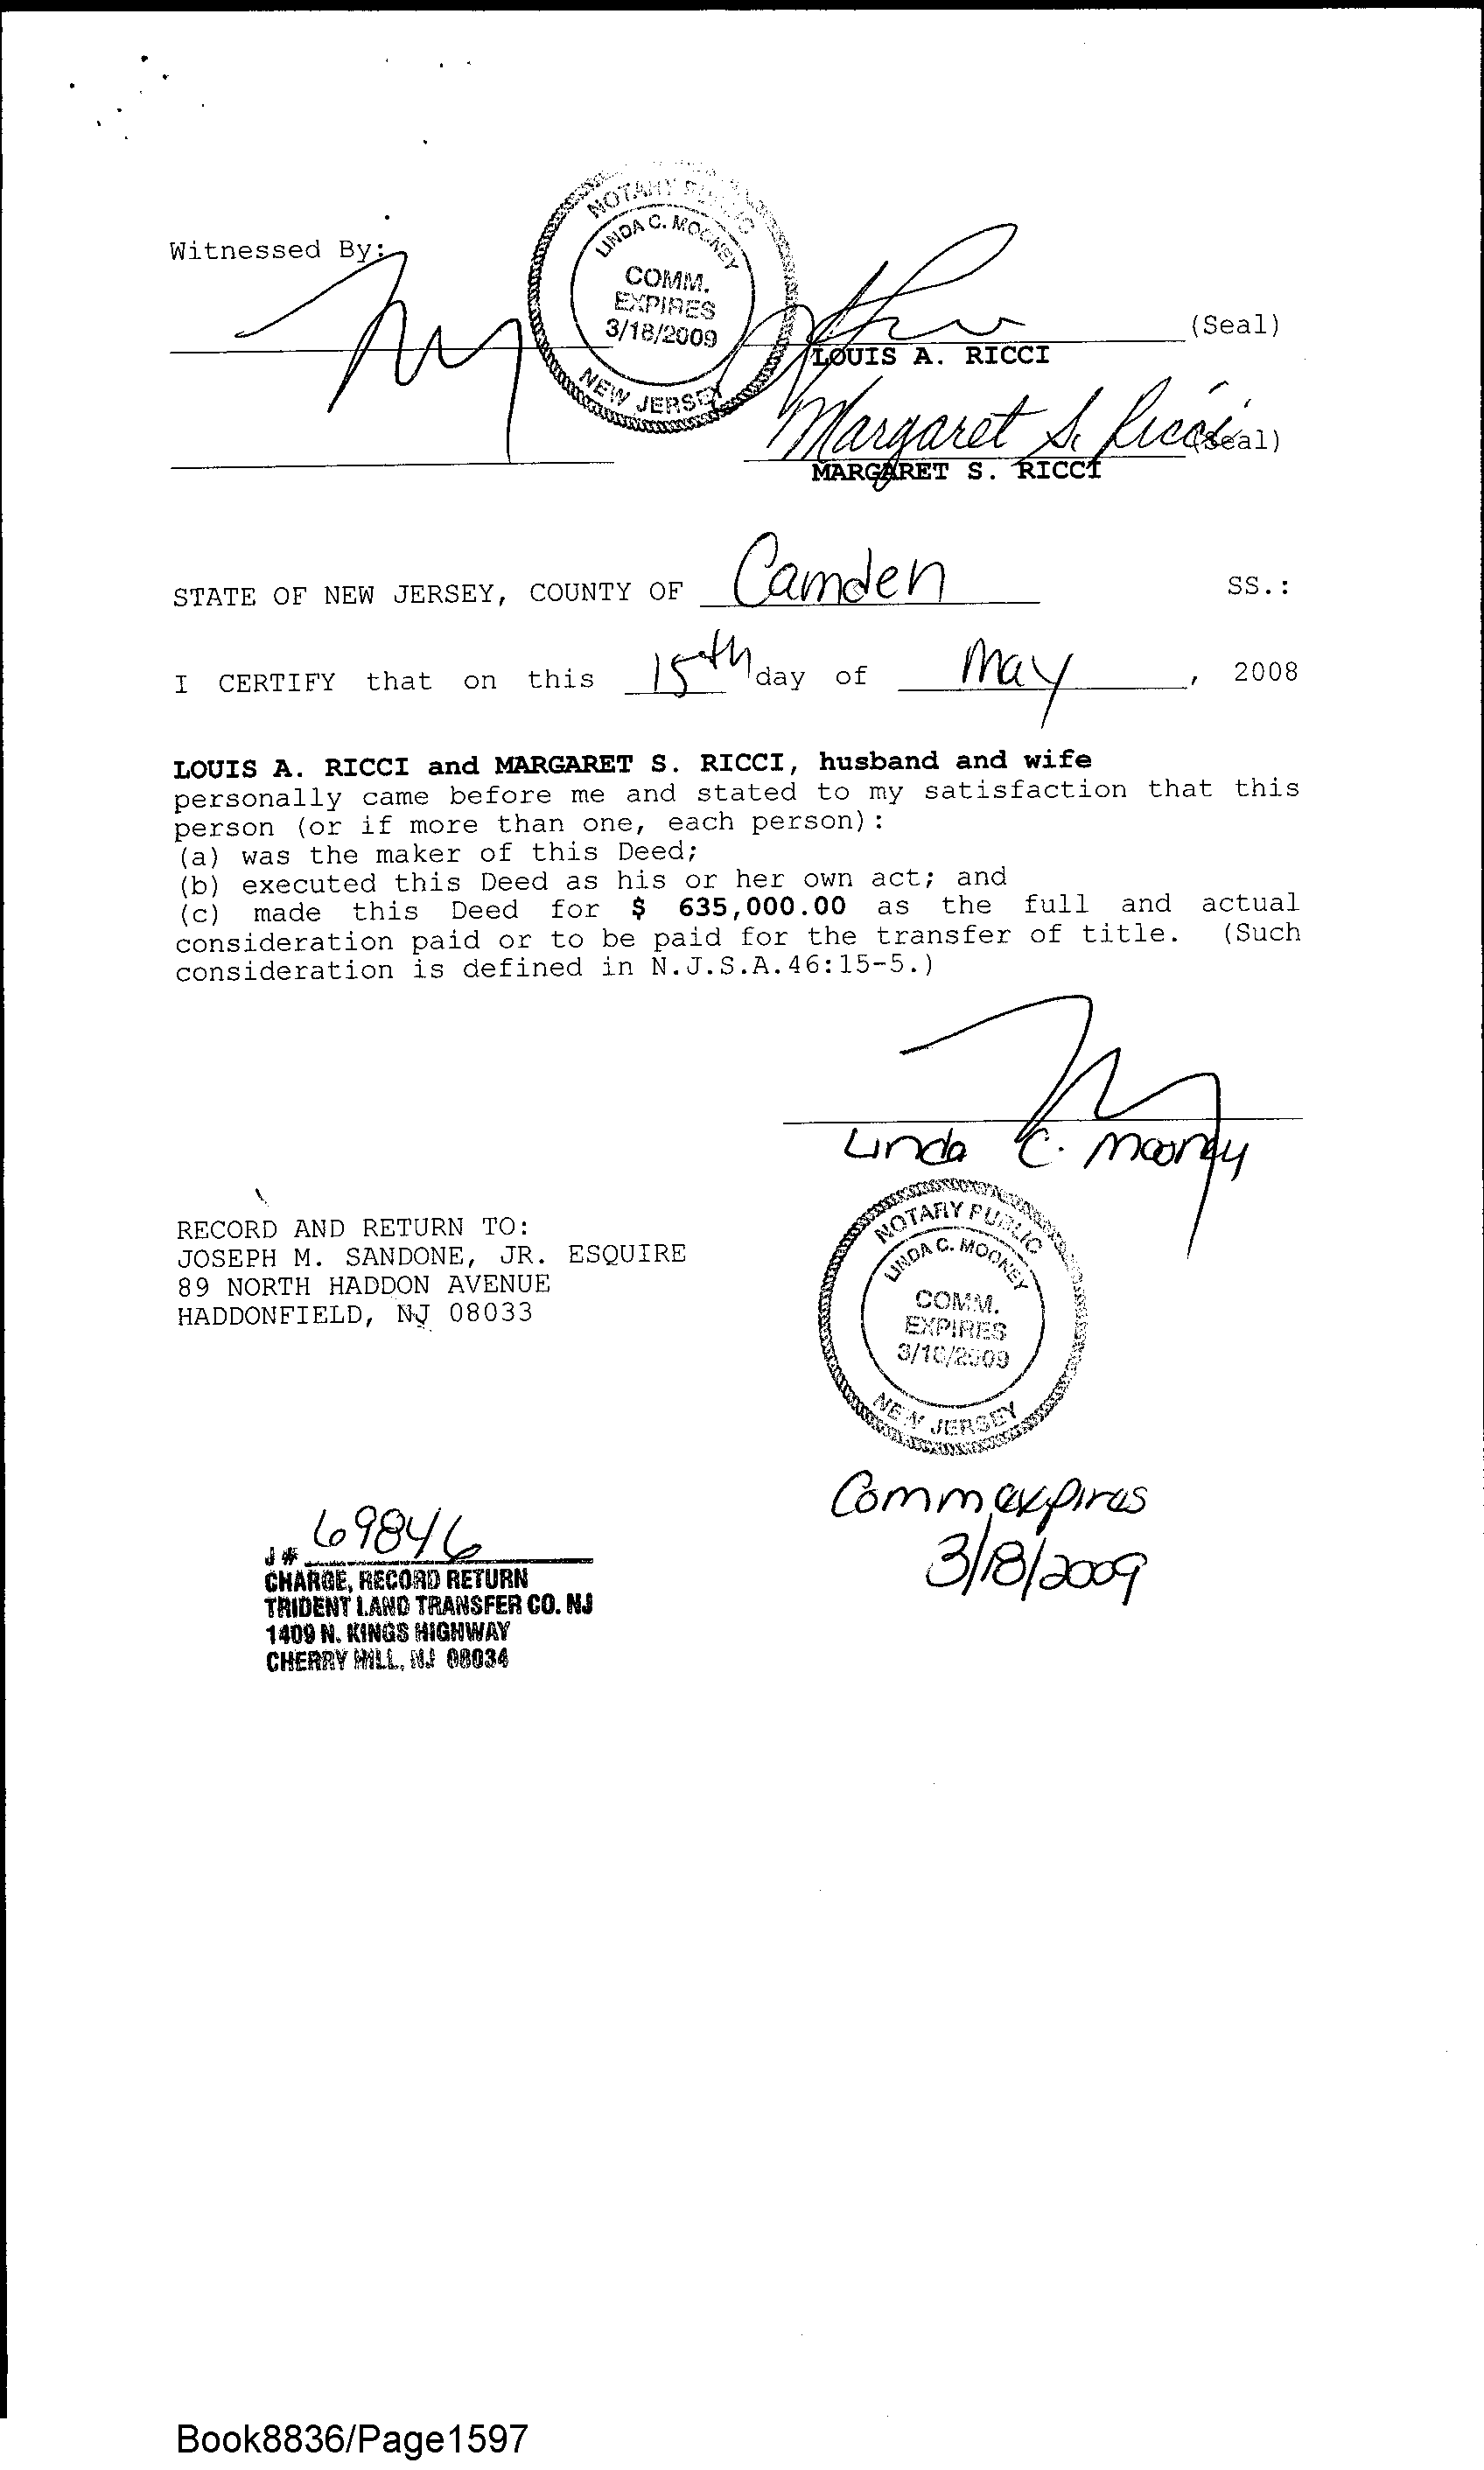 Witnessed By:
NOTARY PUBLIC
LINDA C. MOONEY
COMM.
EXPIRES
3/18/2009
NEW JERSEY
(Seal)
LOUIS A. RICCI
Margaret S. Ricci (Seal)
MARGARET S. RICCI
STATE OF NEW JERSEY, COUNTY OF Camden SS.:
I CERTIFY that on this 15th day of May, 2008
LOUIS A. RICCI and MARGARET S. RICCI, husband and wife
personally came before me and stated to my satisfaction that this
person (or if more than one, each person):
(a) was the maker of this Deed;
(b) executed this Deed as his or her own act; and
(c) made this Deed for $ 635,000.00 as the full and actual
consideration paid or to be paid for the transfer of title. (Such
consideration is defined in N.J.S.A.46:15-5.)
Linda C. Mooney
NOTARY PUBLIC
LINDA C. MOONEY
COMM.
EXPIRES
3/18/2009
NEW JERSEY
RECORD AND RETURN TO:
JOSEPH M. SANDONE, JR. ESQUIRE
89 NORTH HADDON AVENUE
HADDONFIELD, NJ 08033
Comm expires
3/18/2009
J# 69846
CHARGE, RECORD RETURN
TRIDENT LAND TRANSFER CO. NJ
1409 N. KINGS HIGHWAY
CHERRY HILL, NJ 08034
Book8836/Page1597